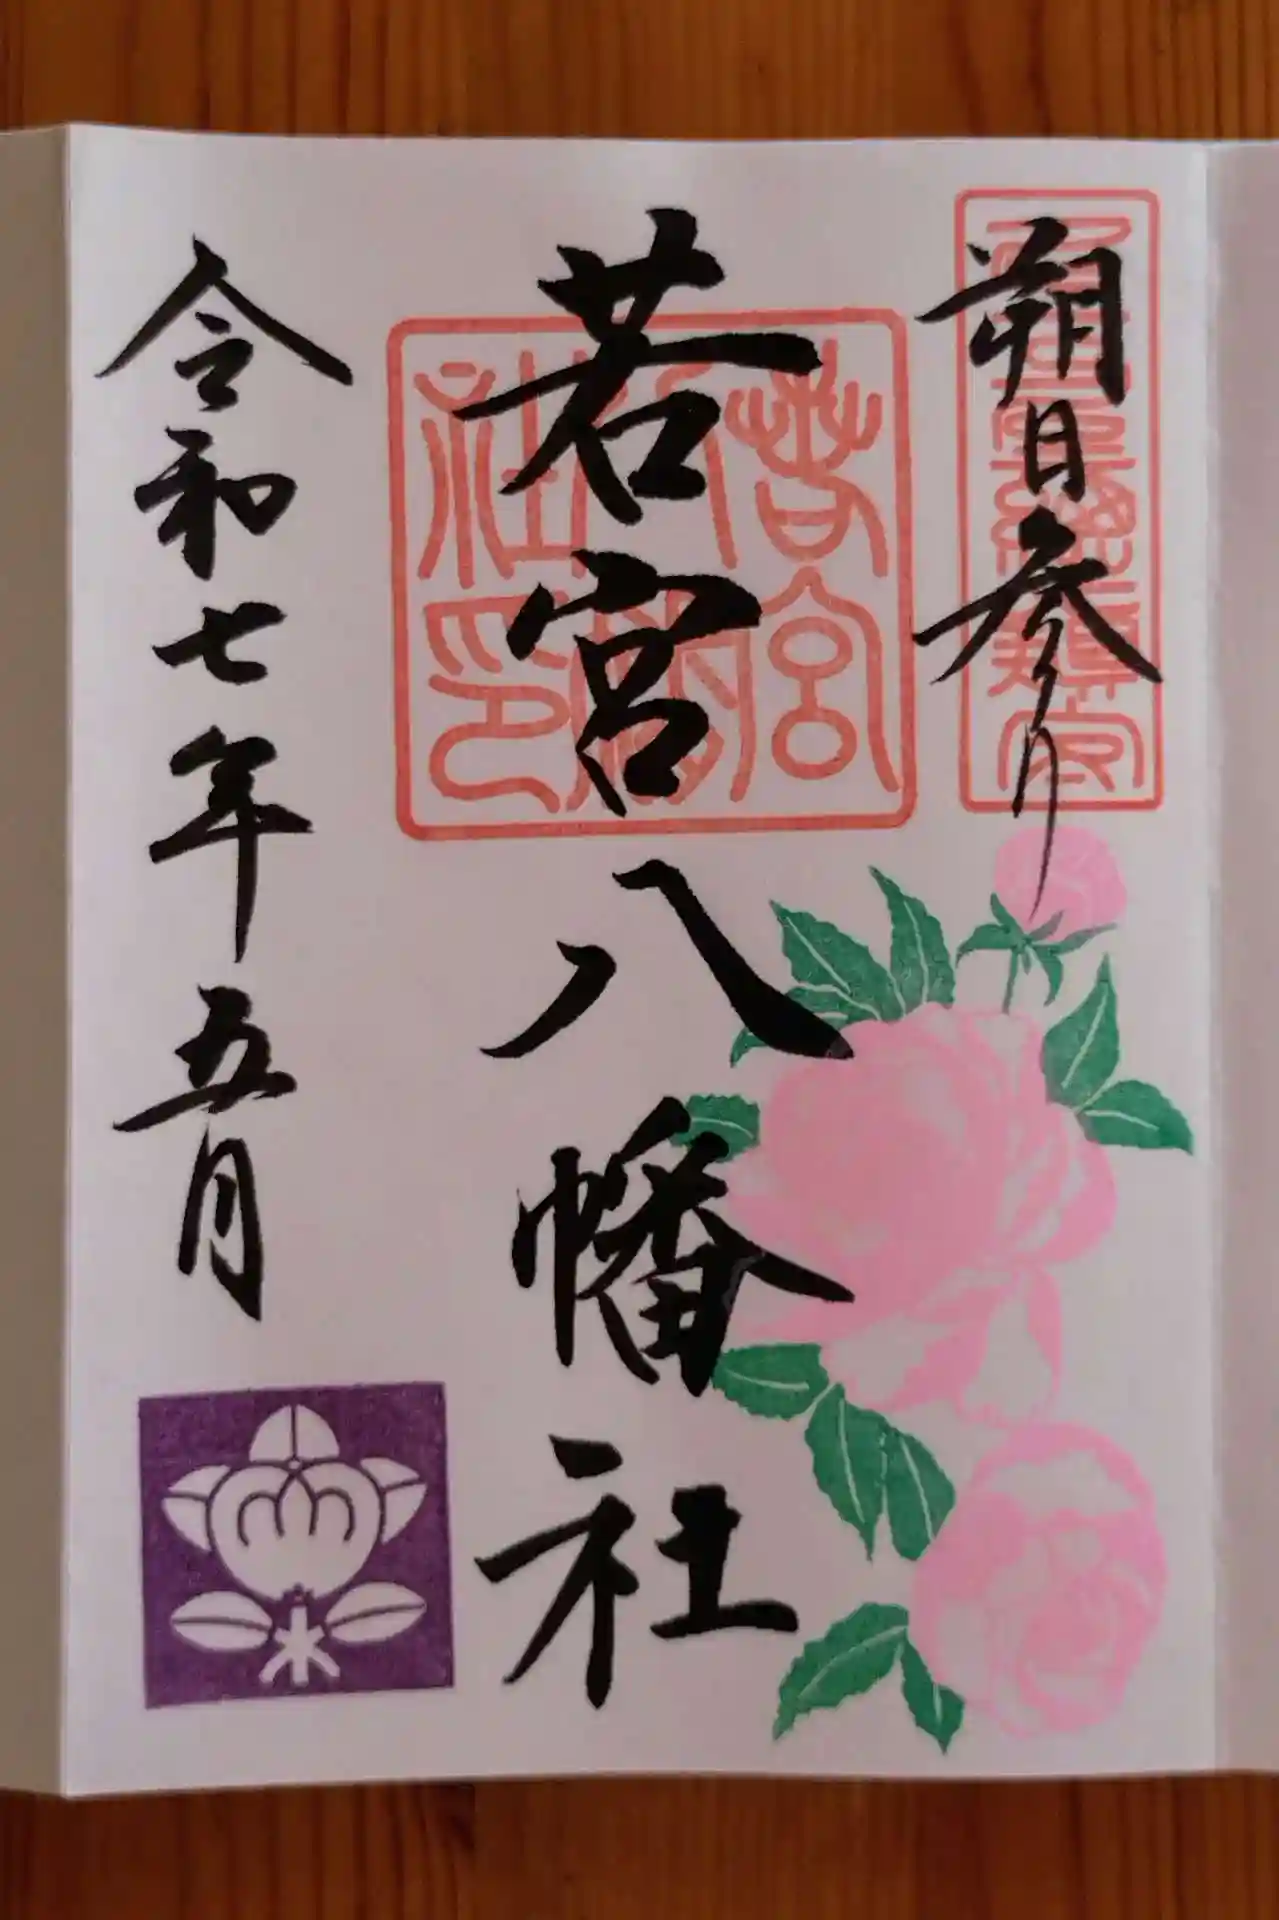 朔日参り
若宮八幡社
若宮八幡社印
令和七年五月